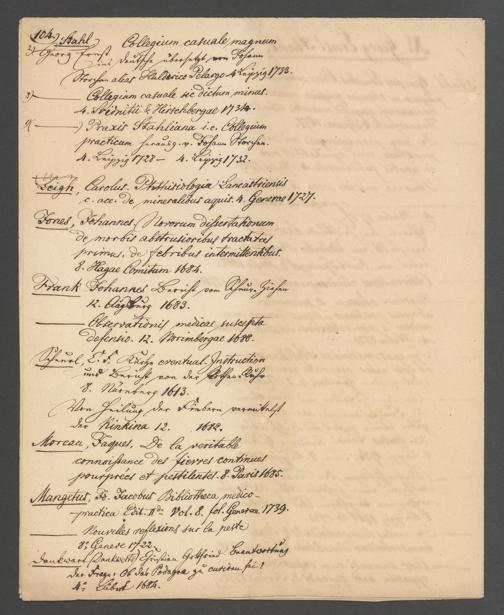 104.) Stahl Collegium casuale, magnum
2) Georg Ernst ins deutsche übersetzt von Johann
Storchen alias Hulderico Pelargo 4. Leipzig 1733.
3) — Collegium casuale sic dictum minus.
4. Svidnitii & Hirschbergae 1734.
4) — Praxis Stahliana i.e. Collegium
practicum herausg. v. Johann Storchen.
4. Leipzig 1728 — 4. Leipzig 1732.
Leigh, Carolus. Phthisiologia Lancastriensis
c. acc. de mineralibus aquis. 4. Genevae 1727.
Jones, Johannes, Novarum dissertationum
de morbis abstrusioribus tractatus
primus. de febribus intermittentibus.
8. Hagae Comitum 1684.
Frank Johannes Bericht vom
12. Augsburg 1683.
— Observationis medicae suscepta
defensio. 12. Norimbergae 1688.
Scheurl, E. F. Kurze eventual Instruction
und Bericht von der Rothen-Ruhr
8. Nürnberg
Von Heilung der Fiebern vermittelst
der Kinkina 12.
Moreau, Jaques, De la veritable
connoissance des fievres continues
pourprées et pestilentes. 8. Paris 1685.
Mangetus, Jo. Jacobus Bibliotheca medico-
-practica Edit. IIda Vol. 8. fol. Geneva 1739.
— Nouvelles reflexions sur la peste
8. Geneve 1722.
Dankwart (Dankwerts) Christian Gottfried Beantwortung
der Frage: Ob das Podagra zu curiren sei?
4. Lübek 1684.